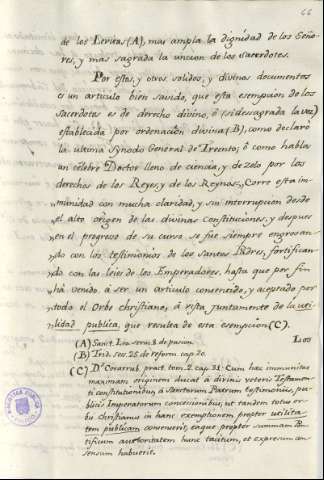 66
de los Levitas (A), mas ampla la dignidad de los Seño-
res, y mas sagrada la uncion de los Sacerdotes.
Por estos, y otros solidos, y divinos documentos
es un articulo bien savido, que esta esempcion de los
Sacerdotes es de derecho divino, ó (si desagrada la voz)
establecida por ordenacion divina (B), como declaró
la ultima Synodo General de Trento; ó como habla
un célebre Doctor lleno de ciencia, y de zelo por los
derechos de los Reyes, y de los Reynos: Corre esta im-
munidad con mucha claridad, y sin interrupcion desde
el alto origen de las divinas Constituciones, y despues
en el progreso de su curso se fue siempre engrosan-
do con los testimonios de los Santos Padres, fortifican-
do con las leies de los Emperadores, hasta que por fin
há venido á ser un articulo convenido, y aceptado por
todo el Orbe christiano, á vista juntamente de la uti-
lidad publica, que resulta de esta esempcion (C).
Los
(A) Sanct. Leo serm. 8 de pasion.
(B) Trid. ses. 25 de reform. cap. 20.
(C) D. Covarrub. pract. tom. 2. cap. 31. Cum hæc immunitas
maximam originem ducat a divini veteris Testamen-
ti constitutionibus á Sanctorum Patrum testimoniis, pu-
blicis Imperatorum concesionibus, ut tandem totus or-
bis christianus in hanc exemptionem propter utilita-
tem publicam convenerit, eaque propter summam Pon-
tificum auctoritatem hunc tacitum, et expresum con-
sensum habuerit.